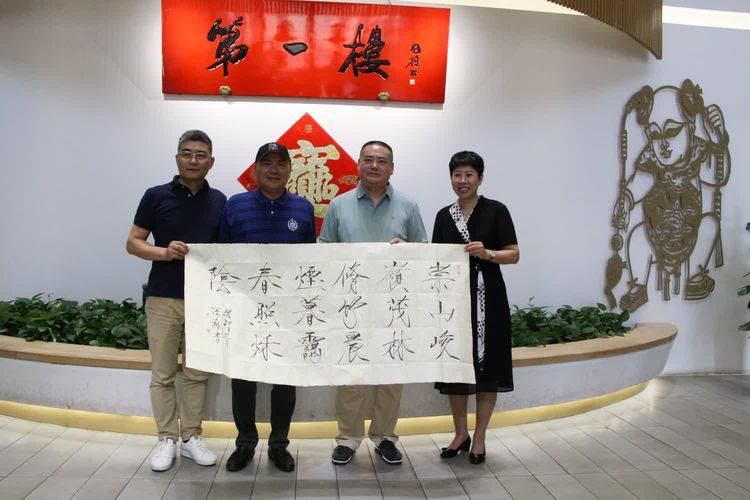 第一樓
崇山峻
嶺茂林
脩竹晨
煙暮靄
春煦秌
陰